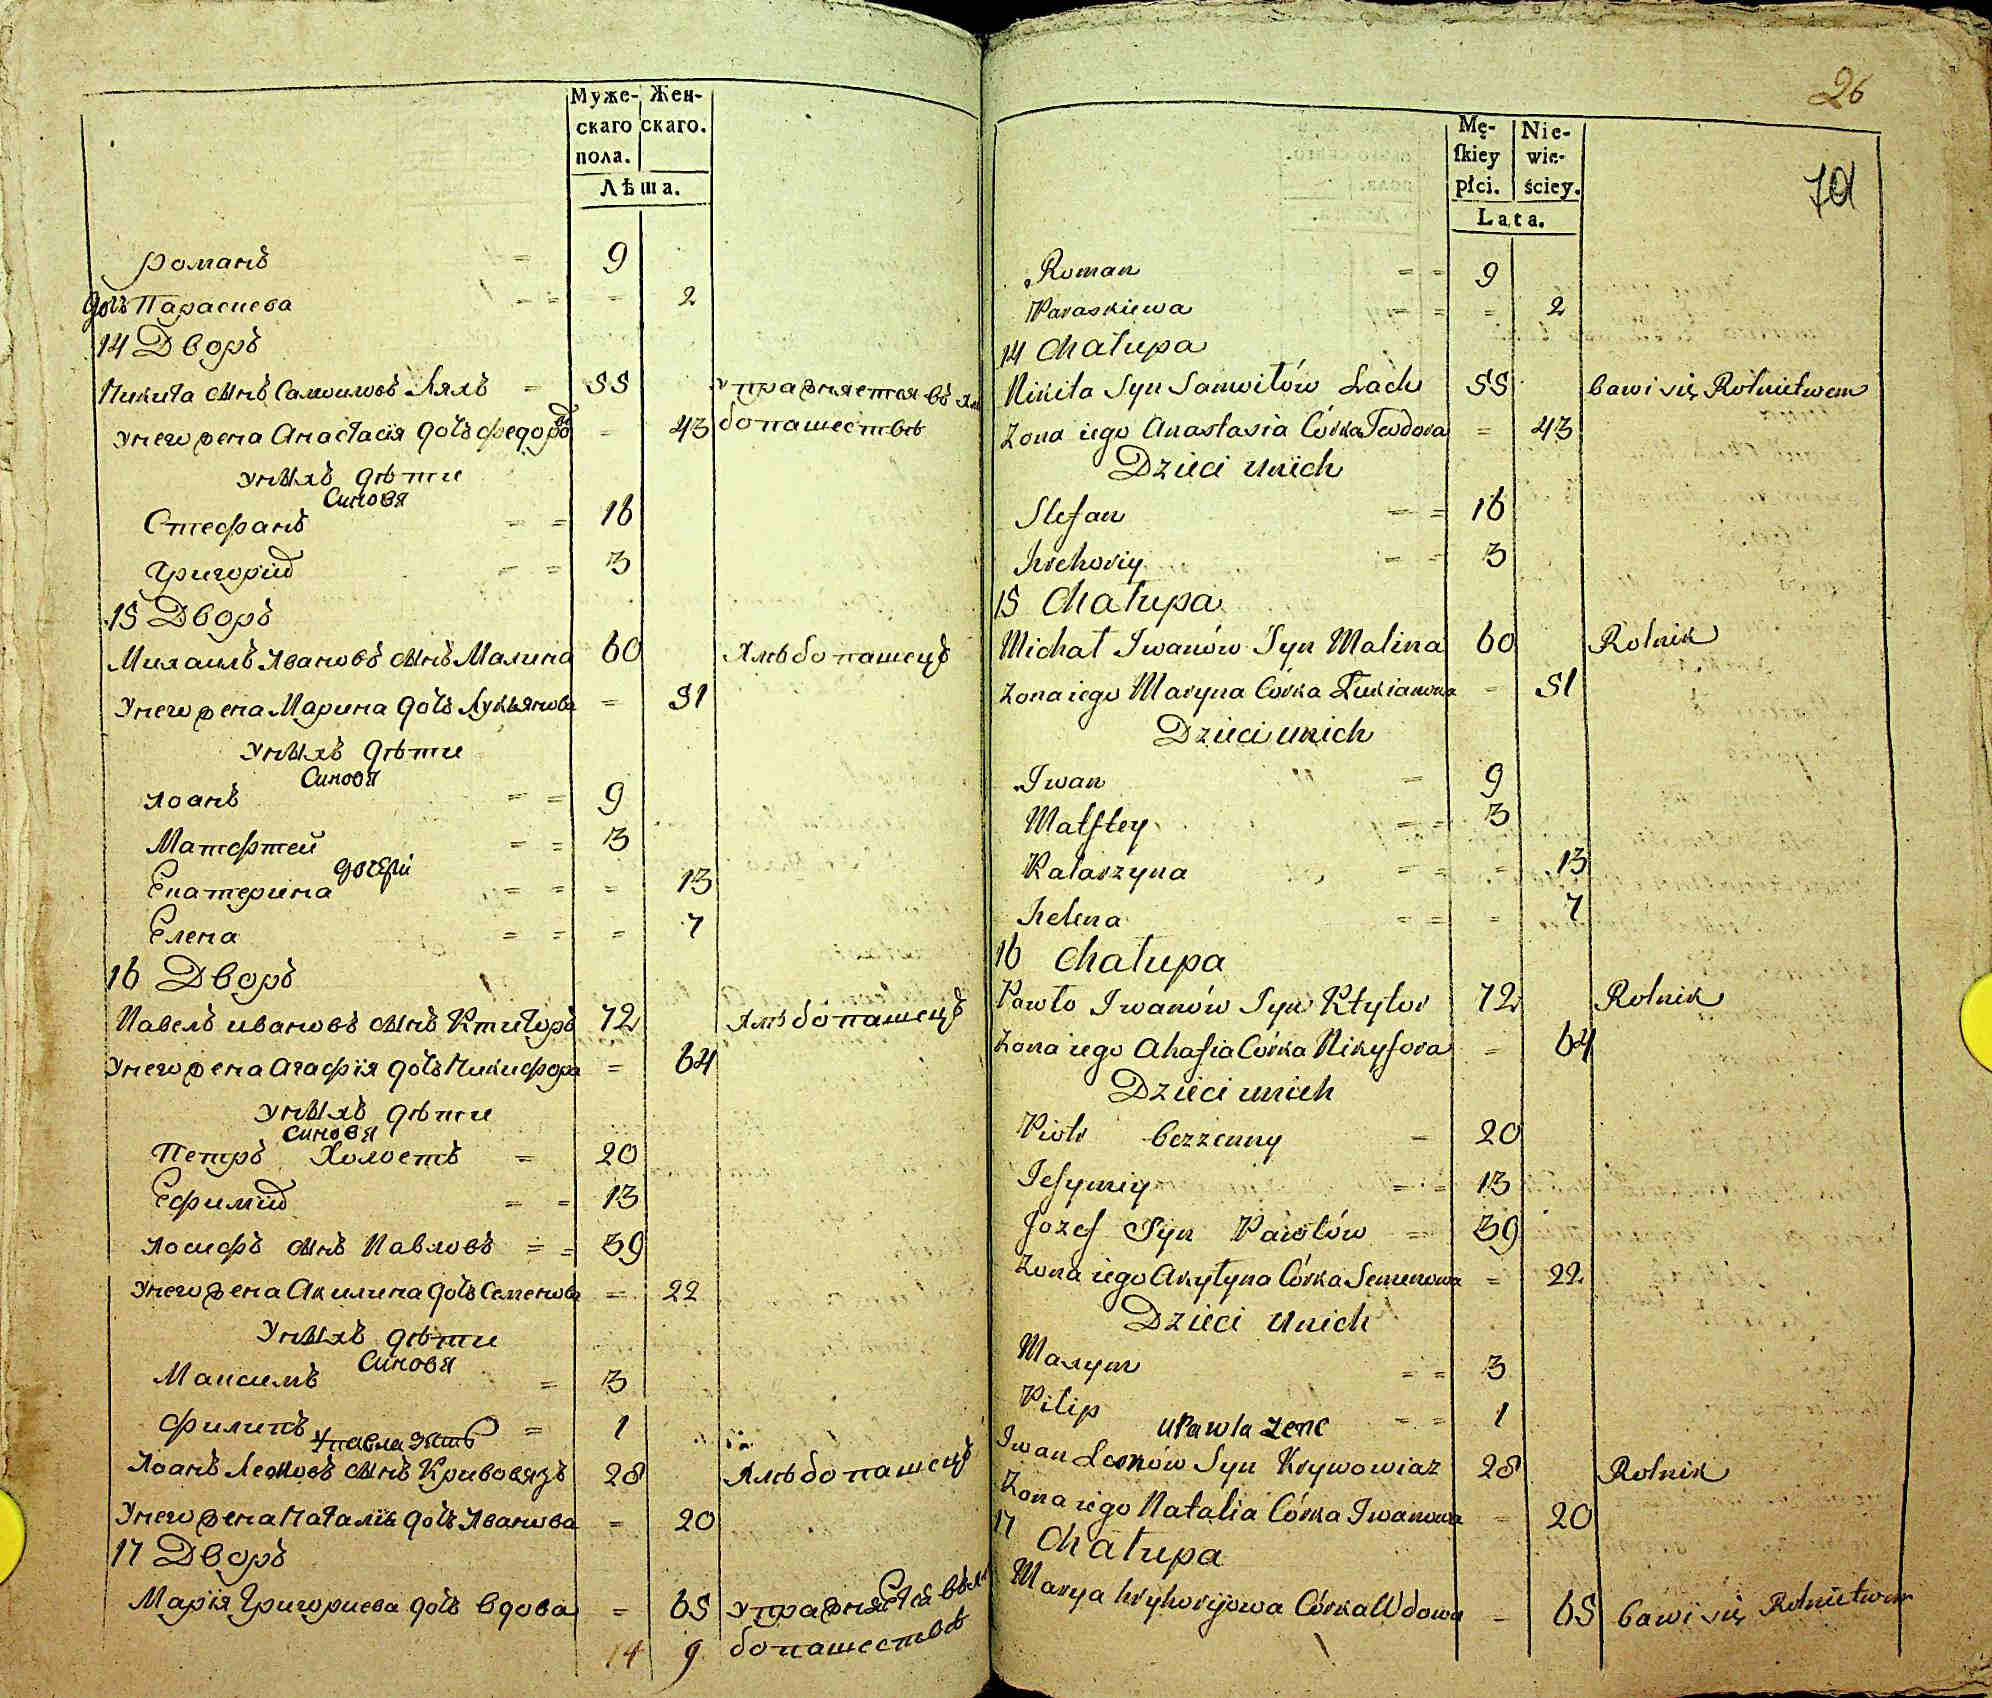 Муже- Жен-
скаго скаго.
пола.
Лѣша.
Романъ = 9
дочь Параскева = = - 2
14 Дворъ
Никита сынъ Самоиловъ Ляхъ = 55 упражняется въ хлѣ
Унего жена Анастасія дочь Федорова = 43 бопашествѣ
Унихъ дѣти
Синовя
Стефанъ = = 16
Григорій = = 3
15 Дворъ
Михаилъ Ивановъ сынъ Малина 60 Хлѣбопашецъ
Унего жена Марина дочь Лукьянова = 51
Унихъ дѣти
Синовя
Іоанъ = = 9
Матфтей = = 3
дочери
Екатерина = = = 13
Елена = = = 7
16 Дворъ
Павелъ Ивановъ сынъ Ктиторъ 72 Хлѣбопашецъ
Унего жена Агафія дочь Никифора = 64
Унихъ дѣти
Синовя
Петръ Холостъ = 20
Ефимій = = 13
Іосифъ сынъ Павловъ = = 39
Унего жена Акилина дочь Семенова = 22
Унихъ дѣти
Синовя
Максимъ = 3
Филипъ = 1
Упавла зять
Іоанъ Леоновъ сынъ Кривовязъ 28 Хлѣбопашецъ
Унего жена Наталія дочь Иванова = 20
17 Дворъ
Марія Григориева дочь вдова = 65 упражняется въ хлѣ
14 9 бопашествѣ
26
70
Mę- Nie-
ſkiey wie-
płci. ściey.
Lata.
Roman = = 9
Paraskiewa = = = 2
14 Chałupa
Nikita Syn Samoiłów Lach 55 bawi się Rolnictwem
Żona iego Anastasia Córka Teodora = 43
Dzieci unich
Stefan = = 16
Hrehoriy = = 3
15 Chałupa
Michał Iwanów Syn Malina 60 Rolnik
Żona iego Maryna Córka Łukianowa = 51
Dzieci unich
Iwan = 9
Matftey = = 3
Katarzyna = = = 13
Helena = = = 7
16 Chałupa
Pawło Iwanów Syn Ktytor 72 Rolnik
Żona iego Ahafia Córka Nikyfora = 64
Dzieci unich
Piotr bezżenny = 20
Jefymiy = = 13
Jozef Syn Pawłów = 39
Żona iego Akylyna Córka Semenowa = 22
Dzieci unich
Maxym = = 3
Pilip = = 1
u Pawla Zenc
Iwan Leonów Syn Krywowiaz 28 Rolnik
Żona iego Natalia Córka Iwanowa = 20
17 Chałupa
Marya Hryhoryjowa Córka Wdowa = 65 bawi się Rolnictwem